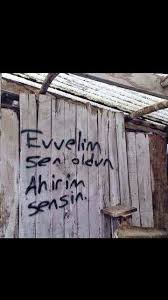 Evvelim
sen oldun
Ahirim
sensin.